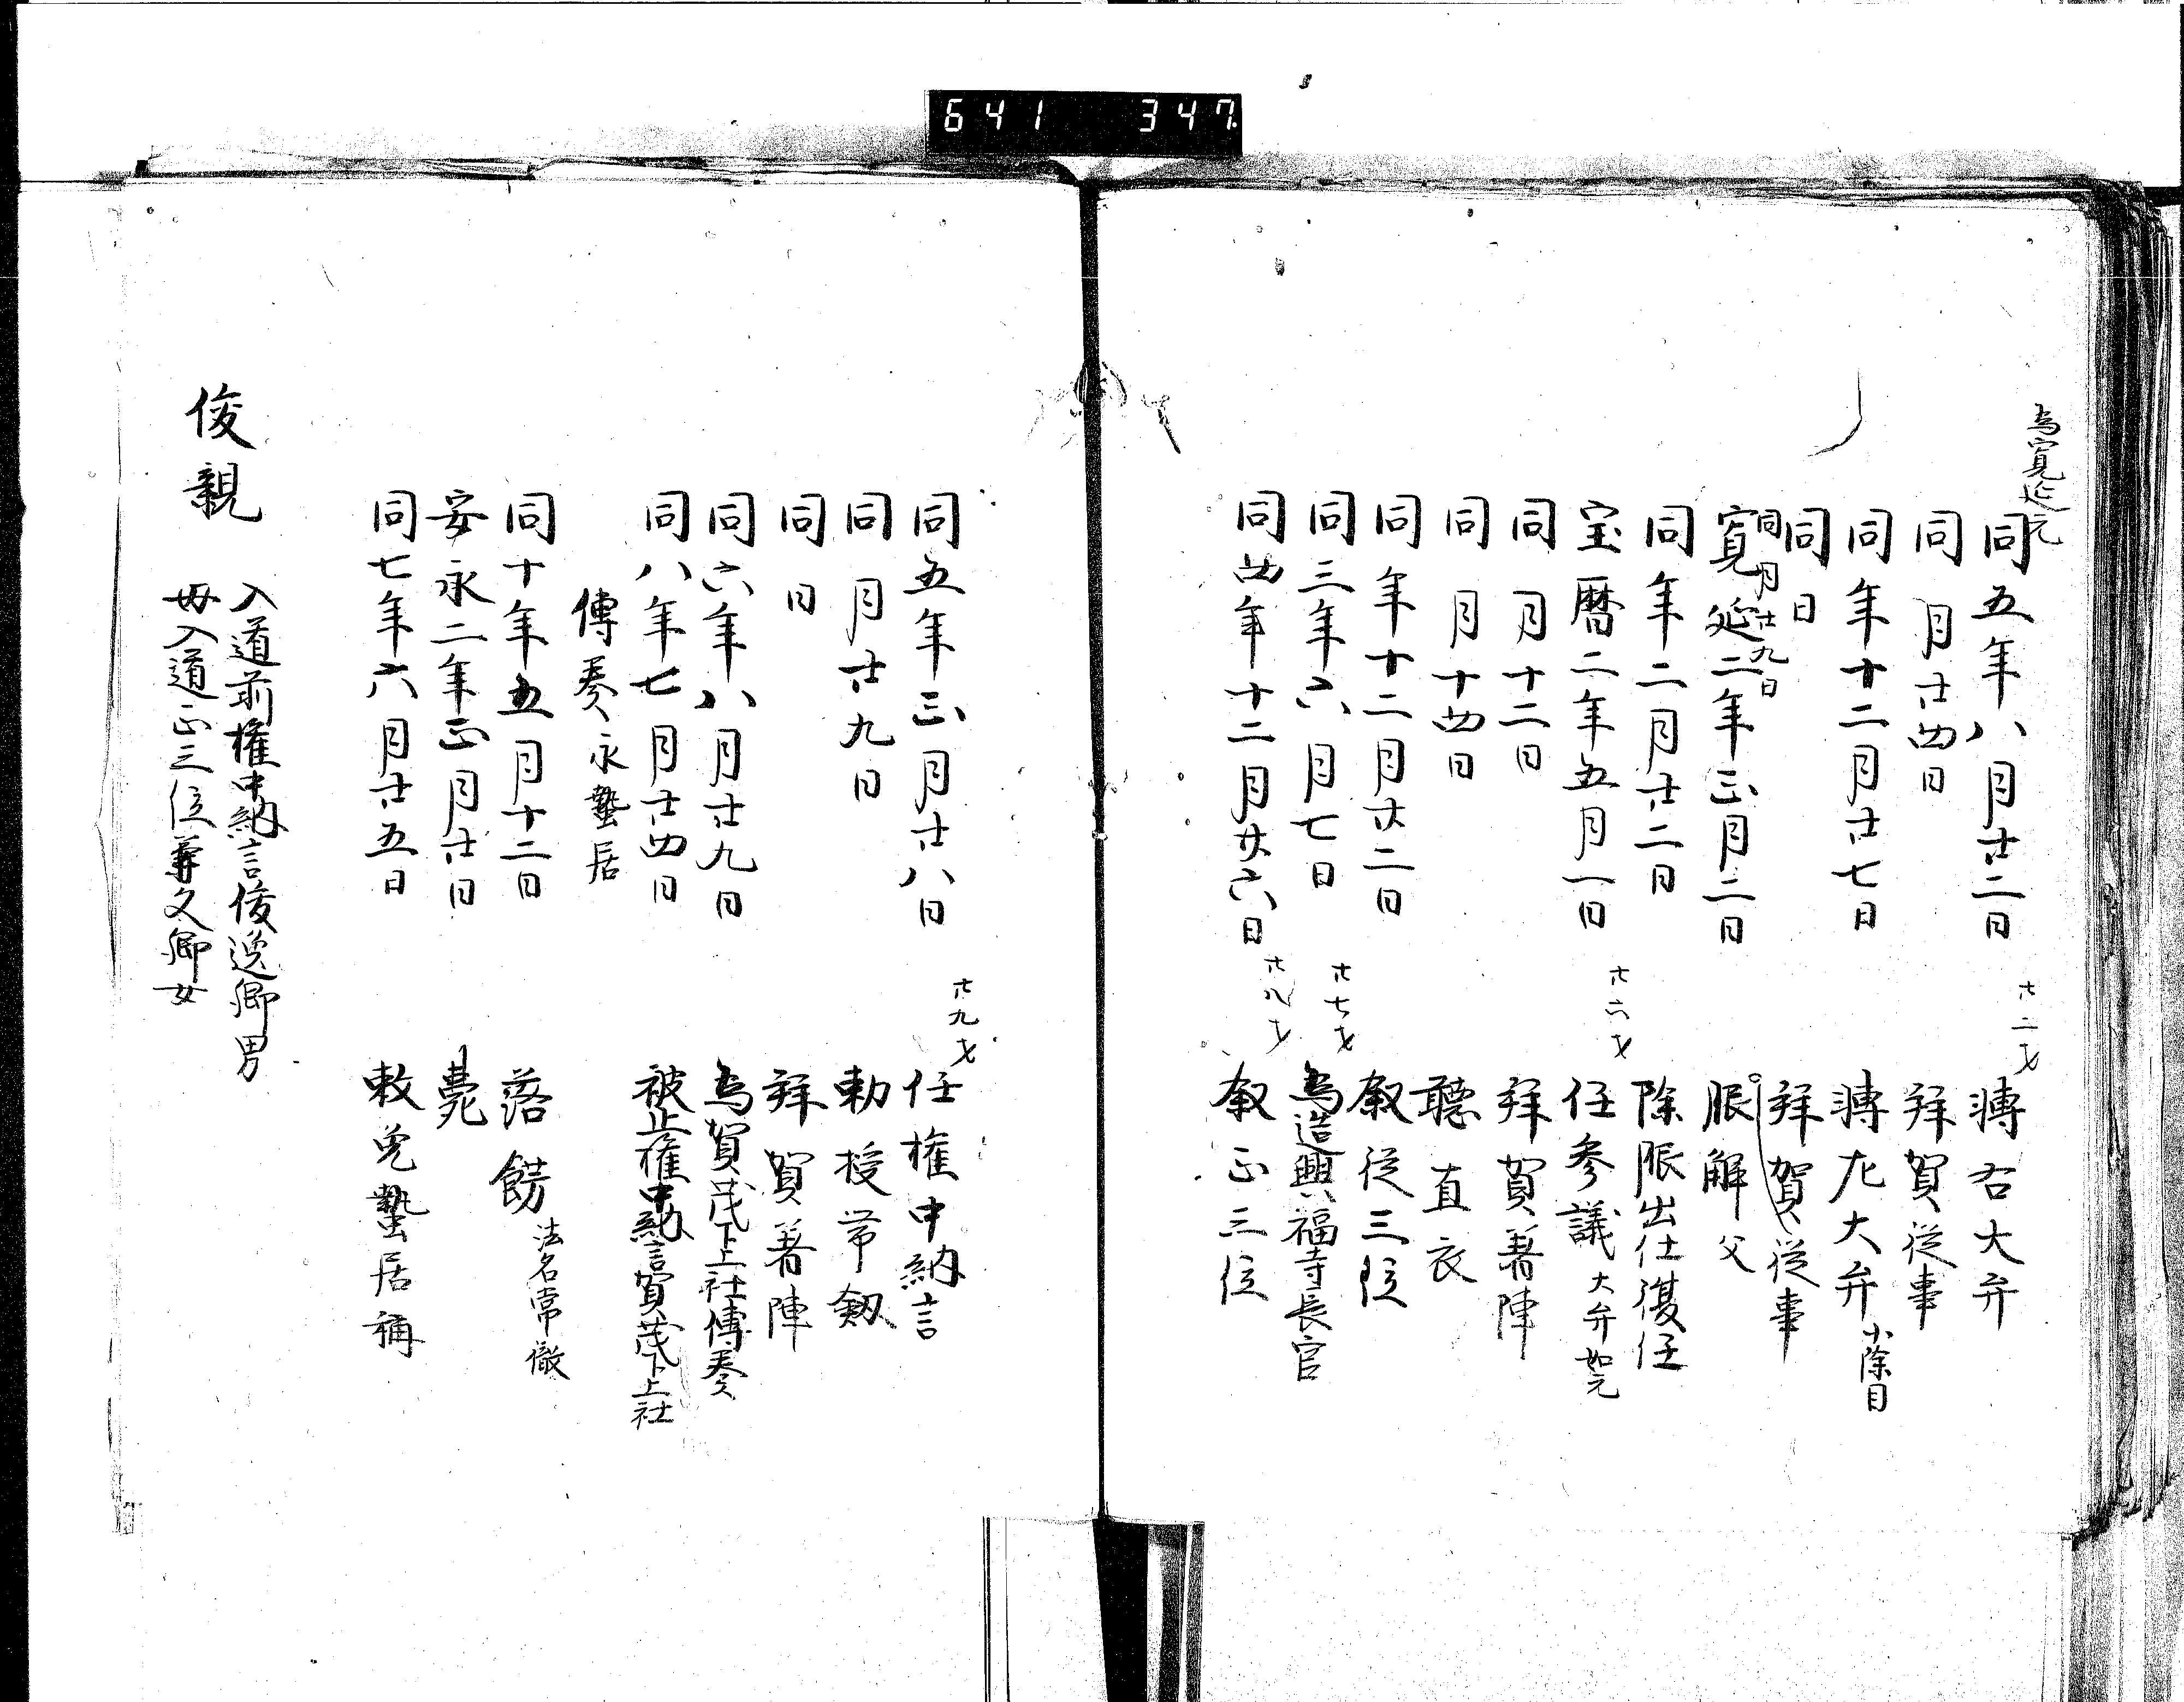 641 347
為寛延元
同五年八月廿二日 廿二才 轉右大弁
同月廿四日 拜賀從事
同年十二月廿七日 轉左大弁 小除目
同日
同月廿九日 拜賀從事
寛延二年正月二日 服解 父
同年二月廿二日 除服出仕復任
宝暦二年五月一日 廿六才 任参議 大弁如元
同月十二日 拜賀著陣
同月十四日 聴直衣
同年十二月廿二日 叙從三位
同三年六月七日 廿七才 為造興福寺長官
同四年十二月廿六日 廿八才 叙正三位
同五年正月廿八日 廿九才 任権中納言
同月廿九日 勅授帯剱
同日 拜賀著陣
同六年八月廿九日 為賀茂下上社傳奏
同八年七月廿四日 被止権中納言賀茂下上社
傳奏永蟄居
同十年五月十二日 落餝 法名常徹
安永二年正月廿日 薨
同七年六月廿五日 敕免蟄居稱
俊親 入道前権中納言俊逸卿男
母入道正三位兼文卿女